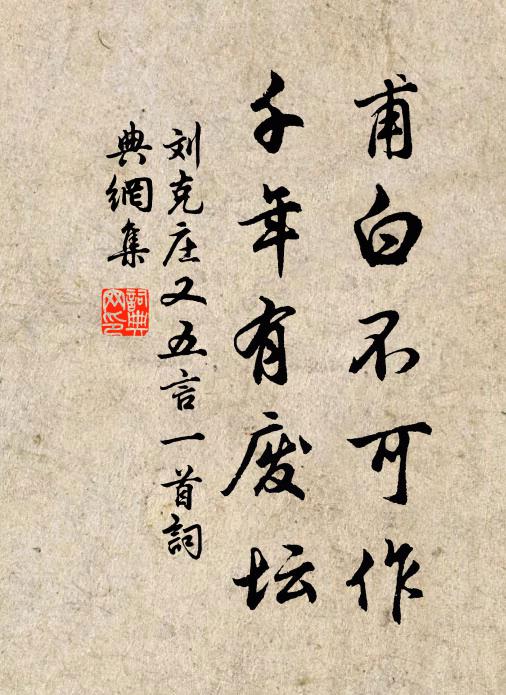 甫白不可作
千年有废坛
刘克庄又五言一首詞
典網集
詞典
网印